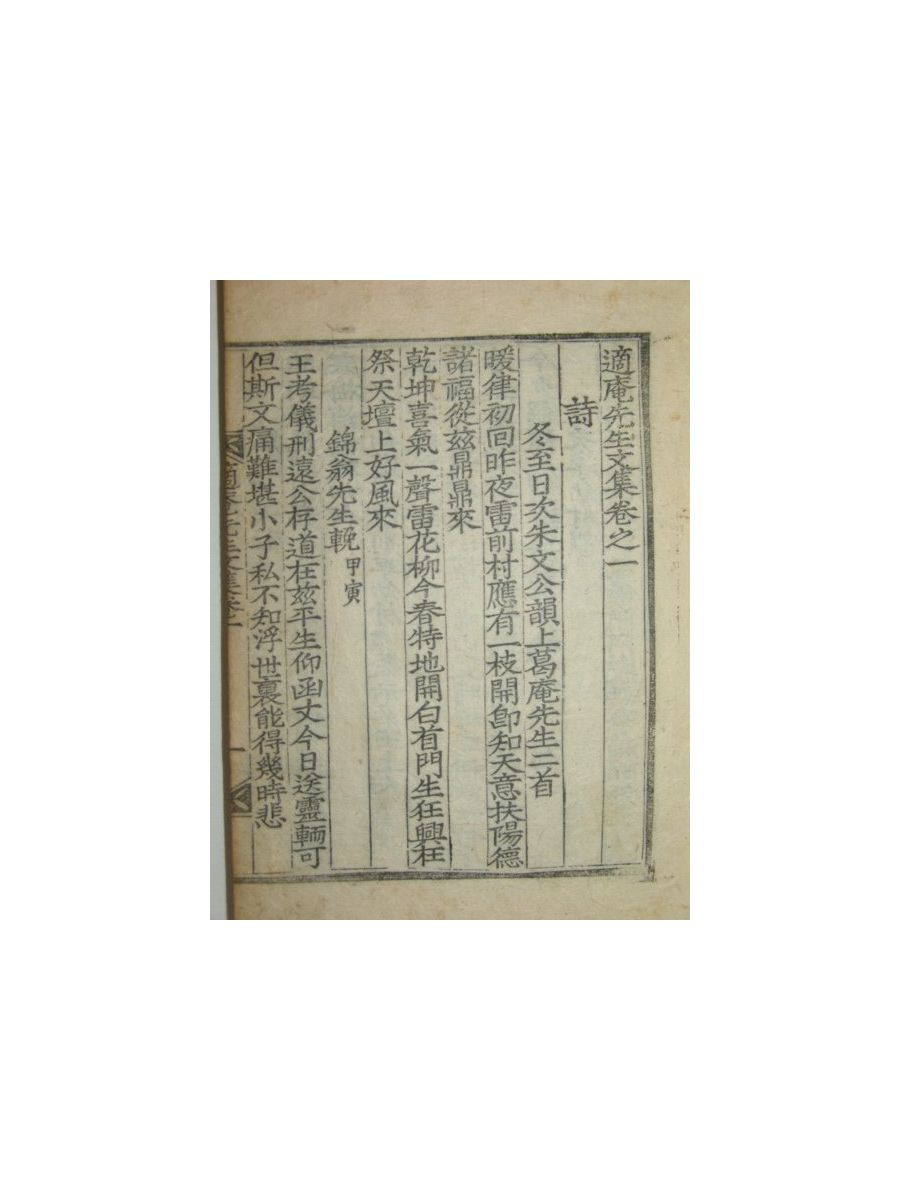 適庵先生文集卷之一
詩
冬至日次朱文公韻上葛庵先生二首
暖律初回昨夜雷前村應有一枝開卽知天意扶陽德
諸福從玆鼎鼎來
乾坤喜氣一聲雷花柳今春特地開白首門生狂興在
祭天壇上好風來
錦翁先生輓 甲寅
王考儀刑遠公存道在玆平生仰函丈今日送靈輀可
但斯文痛難堪小子私不知浮世裏能得幾時悲
適庵先生文集卷一
一